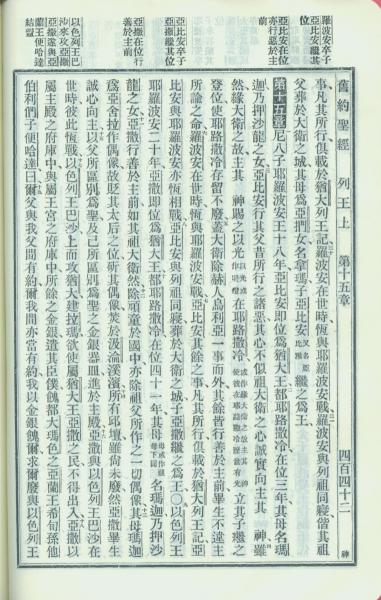 羅波安卒子
亞比安繼其
位
亞比安在位
亦行惡於主
前
亞比安卒子
亞撒繼其位
亞撒在位行
善於主前
以色列王巴
沙來攻亞撒
亞撒遂與亞
蘭王便哈達
結盟
舊約聖經 列王上 第十五章 四百四十二 神
事凡其所行俱載於猶大列王記羅波安在世時恆與耶羅波安戰羅波安與列祖同寢偕其祖
父葬於大衛之城其母爲亞捫女名拿瑪子亞比安又名亞比雅繼之爲王
第十五章 尼八子耶羅波安王十八年亞比安即位爲猶大王都耶路撒冷在位三年其母名瑪
迦乃押沙龍之女亞比安行其父昔所行之諸惡其心不似祖大衛之心誠實向主其 神羅
然緣大衛之故主其 神賜之以光在耶路撒冷立其子繼之
登位使耶路撒冷存留不廢蓋大衛除赫人烏利亞一事而外其餘皆行善於主前畢生不違主
所諭之命羅波安在世時恆與耶羅波安戰亞比安其餘之事凡其所行俱載於猶大列王記亞
比安與耶羅波安亦恆相戰亞比安與列祖同寢葬於大衛之城子亞撒繼之爲王〇以色列王
耶羅波安二十年亞撒即位爲猶大王都耶路撒冷在位四十一年其母名瑪迦乃押沙
龍之女亞撒行善於主前如其祖大衛然除頑童於國中亦除祖父所作之一切偶像其母瑪迦
爲亞舍拉作偶像故貶其太后之位斫其偶像焚於汲淪溪濱所有邱壇雖尚未廢然亞撒畢生
誠心向主以父所區別爲聖及己所區別爲聖之金銀器皿進於主殿亞撒與以色列王巴沙在
世時彼此恆戰以色列王巴沙上而攻猶大建拉瑪欲使屬猶大王亞撒之民不得出入亞撒以
屬主殿之府庫中與屬王宮之府庫中所餘之金銀遣其臣僕餽都大瑪色之亞蘭王希旬孫他
伯利們子便哈達曰爾父與我父間有約爾我間亦當有約我以金銀餽爾求爾廢與以色列王